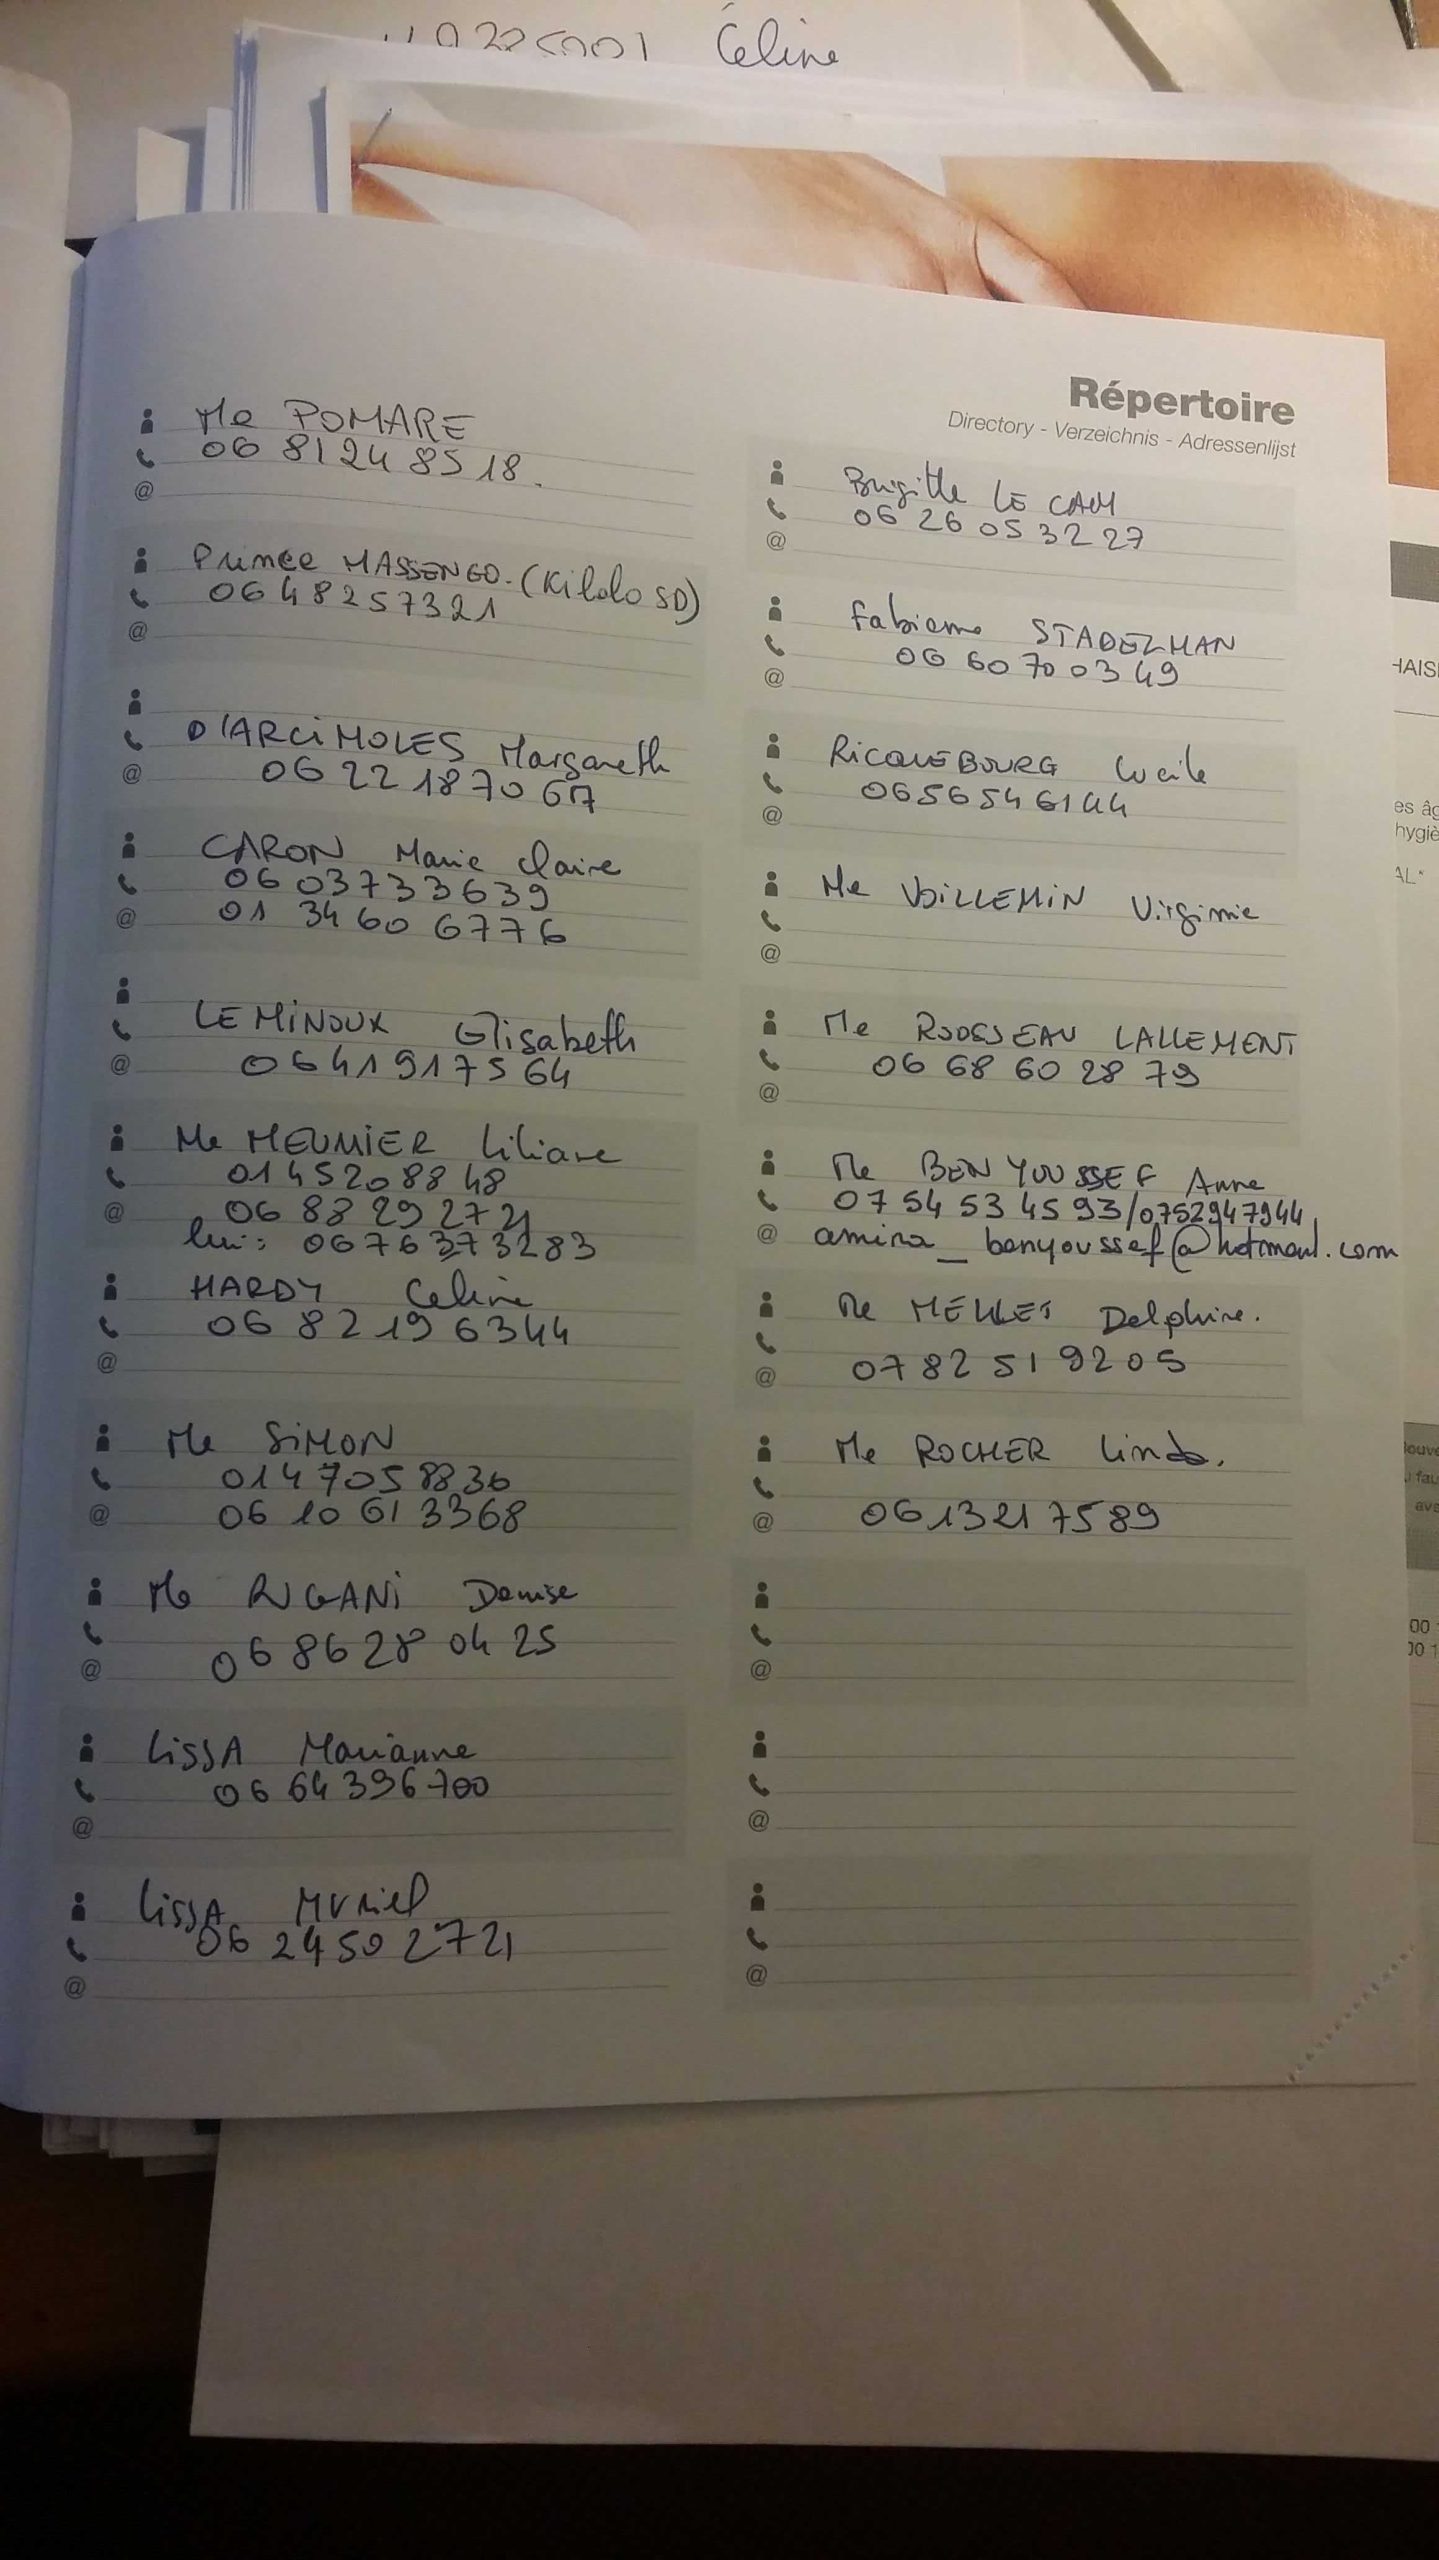 Celine
Répertoire
Directory - Verzeichnis - Adressenlijst
Me POMARE
06 81 24 85 18.
Prince MASSENGO. (Kilolo SD)
06 48 25 73 21
D'ARCIMOLES Margareth
06 22 18 70 67
CARON Marie Claire
06 03 73 36 39
01 34 60 67 76
LE MINOUX Elisabeth
06 41 91 75 64
Me MEUNIER Liliane
01 45 20 88 48
06 88 29 27 21
lui: 06 76 37 32 83
HARDY Celine
06 82 19 63 44
Me SIMON
01 47 05 88 36
06 10 61 33 68
Me RIGANI Denise
06 86 28 04 25
LISSA Marianne
06 64 396 700
LISSA Muriel
06 24 50 27 21
Brigitte LE CAM
06 26 05 32 27
Fabienne STADELMAN
06 60 70 03 49
RICQUEBOURG Lucile
06 56 54 61 44
Me VOILLEMIN Virginie
Me ROUSSEAU LALLEMENT
06 68 60 28 79
Me BEN YOUSSEF Anne
07 54 53 45 93/0752947944
amira_benyoussef@hotmail.com
Me MEHLET Delphine.
07 82 51 92 05
Me ROCHER Linda.
06 13 21 75 89
es âg
hygiè
AL*